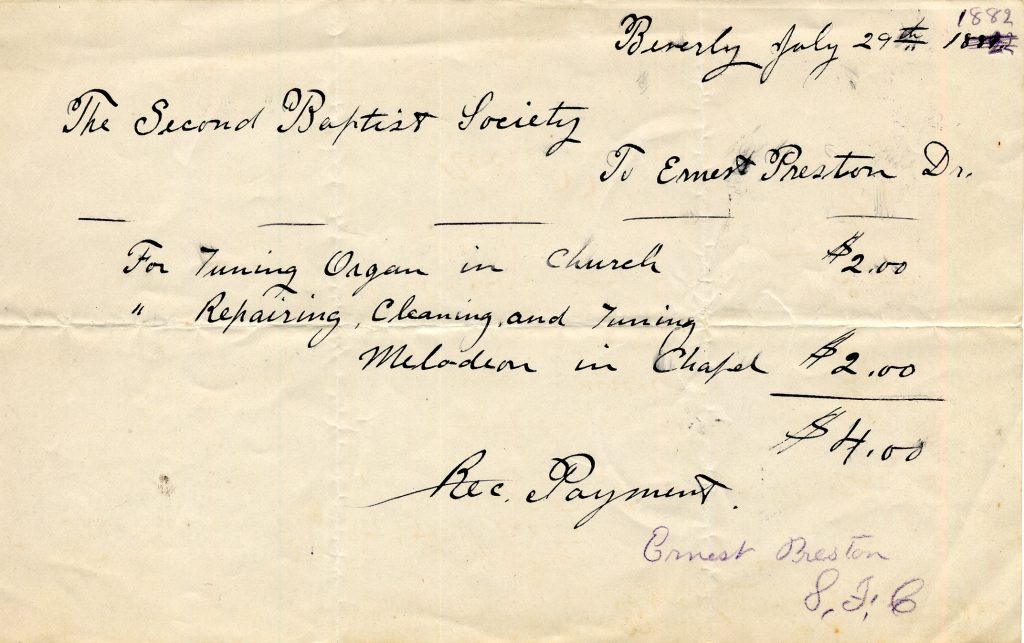 1882
Beverly July 29th
The Second Baptist Society
To Ernest Preston Dr.
For Tuning Organ in Church $2.00
" Repairing, Cleaning, and Tuning
Melodeon in Chapel $2.00
$4.00
Rec. Payment.
Ernest Preston
S. F. C